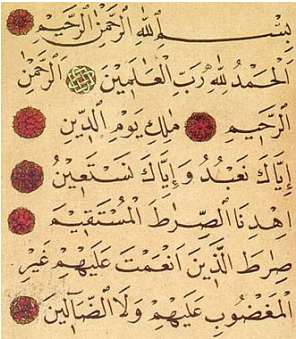 بِسْمِ اللهِ الرَّحْمٰنِ الرَّحِيْمِ
اَلْحَمْدُ لِلّٰهِ رَبِّ الْعَالَمِيْنَ الرَّحْمٰنِ
الرَّحِيْمِ مٰلِكِ يَوْمِ الدِّيْنِ
اِيَّاكَ نَعْبُدُ وَاِيَّاكَ نَسْتَعِيْنُ
اِهْدِنَا الصِّرَاطَ الْمُسْتَقِيْمَ
صِرَاطَ الَّذِيْنَ اَنْعَمْتَ عَلَيْهِمْ غَيْرِ
الْمَغْضُوْبِ عَلَيْهِمْ وَلَا الضَّآلِّيْنَ